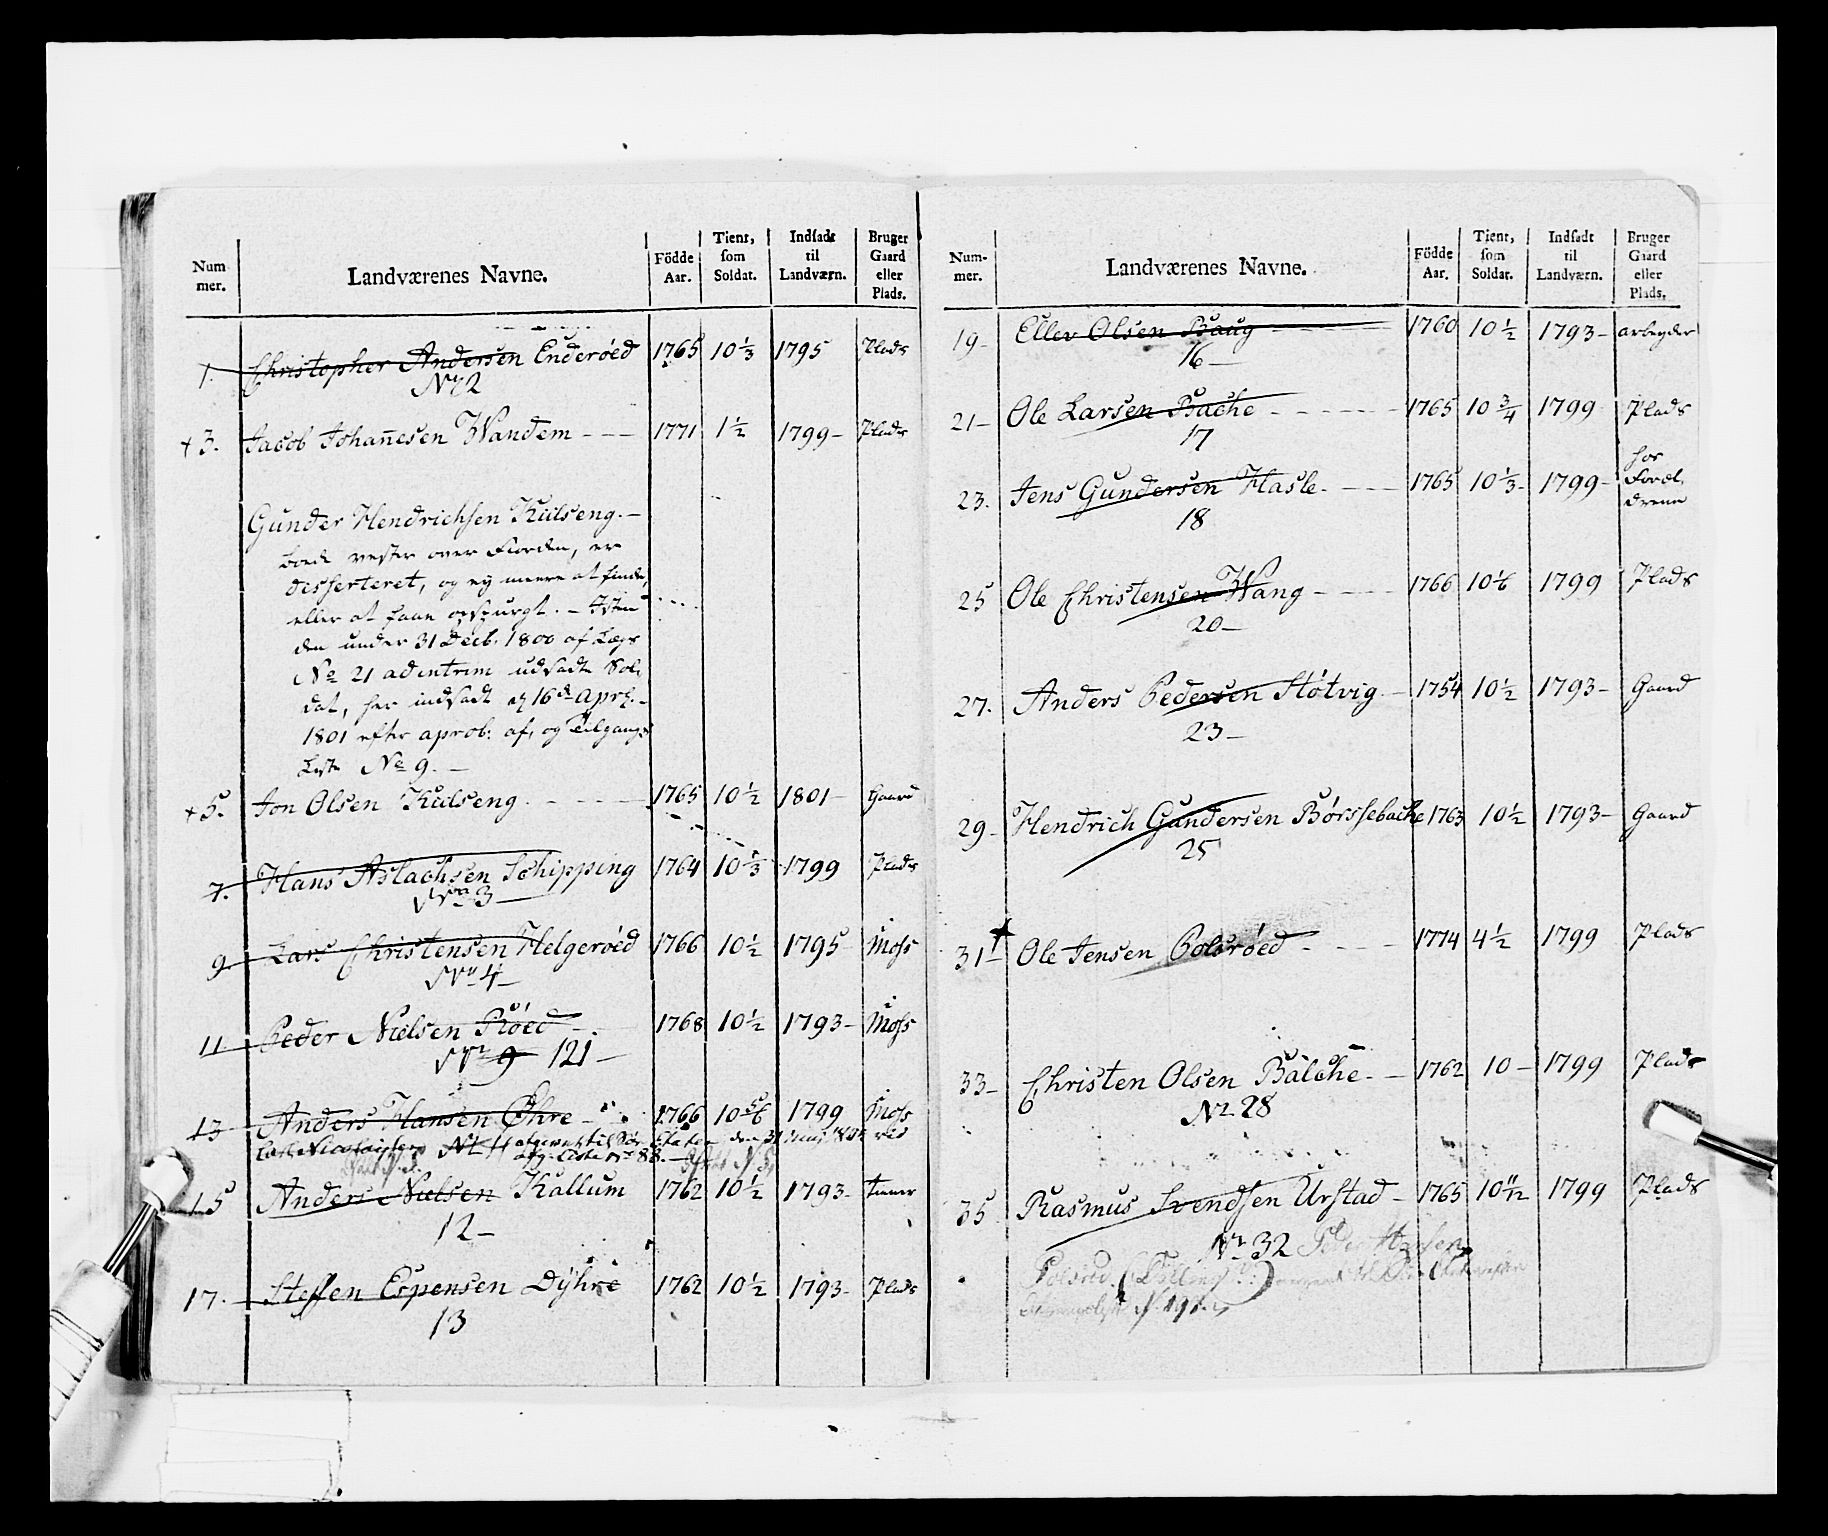 Num mer. Landværenes Navne. Födde Aar. Tient, som Soldat. Indsadt til Landværn. Bruger Gaard eller Plads.
1. Christopher Andersen Enderöed 1765 10 1/3 1795 Plads
No 2
+ 3. Jacob Johanesen Wandem - - - 1771 1 1/2 1799- Plads
Gunder Hendrichsen Kulseng. -
boede vester over Fiorden, er
desserteret, og ey meere at finde,
eller at faae opspurgt. -
den under 31 Decb. 1800 af Lægs
No 21 ad intrim udsadte Sol,
dat, her indsadt d 16de Apr.
1801 efter aprob: af, og Tilgangs
Liste No 9. -
+ 5. Jon Olsen Kulseng - - - - 1765 10 1/2 1801- Gaard
7. Hans Aslachsen Schipping 1764 10 1/3 1799 Plads
No 3
9. Lars Christensen Helgeröed 1766 10 1/2 1795 i Moss
No 4-
11 Peder Nielsen Röed - 1768 10 1/2 1793- i Moss
No 9 121-
13 Anders Hansen Øhre - 1766 10 5/6 1799 i Moss
15 Anders Nielsen Kallum 1762 10 1/2 1793-
12-
17. Steffen Espensen Dÿhre 1762 10 1/2 1793- Plads
13
Num- mer. Landværenes Navne. Födde Aar. Tient, som Soldat. Indsadt til Landværn. Bruger Gaard eller Plads.
19- Ellev Olsen Baug - - - 1760 10 1/2 1793- arbeyder
16-
21- Ole Larsen Bache - - - - - - 1765 10 3/4 1799 Plads
17
23. Jens Gundersen Hasle. - - - 1765 10 1/3- 1799- hos Foræl, drene
18
25 Ole Christensen Wang - - - - 1766 10 1/6 1799 Plads
20-
27. Anders Pedersen Støtvig - 1754 10 1/2 1793- Gaard
23-
29- Hendrich Gundersen Børssebache 1763 10 1/2 1793- Gaard
25
31- Ole Jensen Polsröed - - - - 1774 4 1/2 1799 Plads
33- Christen Olsen Balche - - 1762 10- 1799 Plads
No 28
35 Rasmus Svendsen Urstad - 1765 10 11/12 1799 Plads
No 32